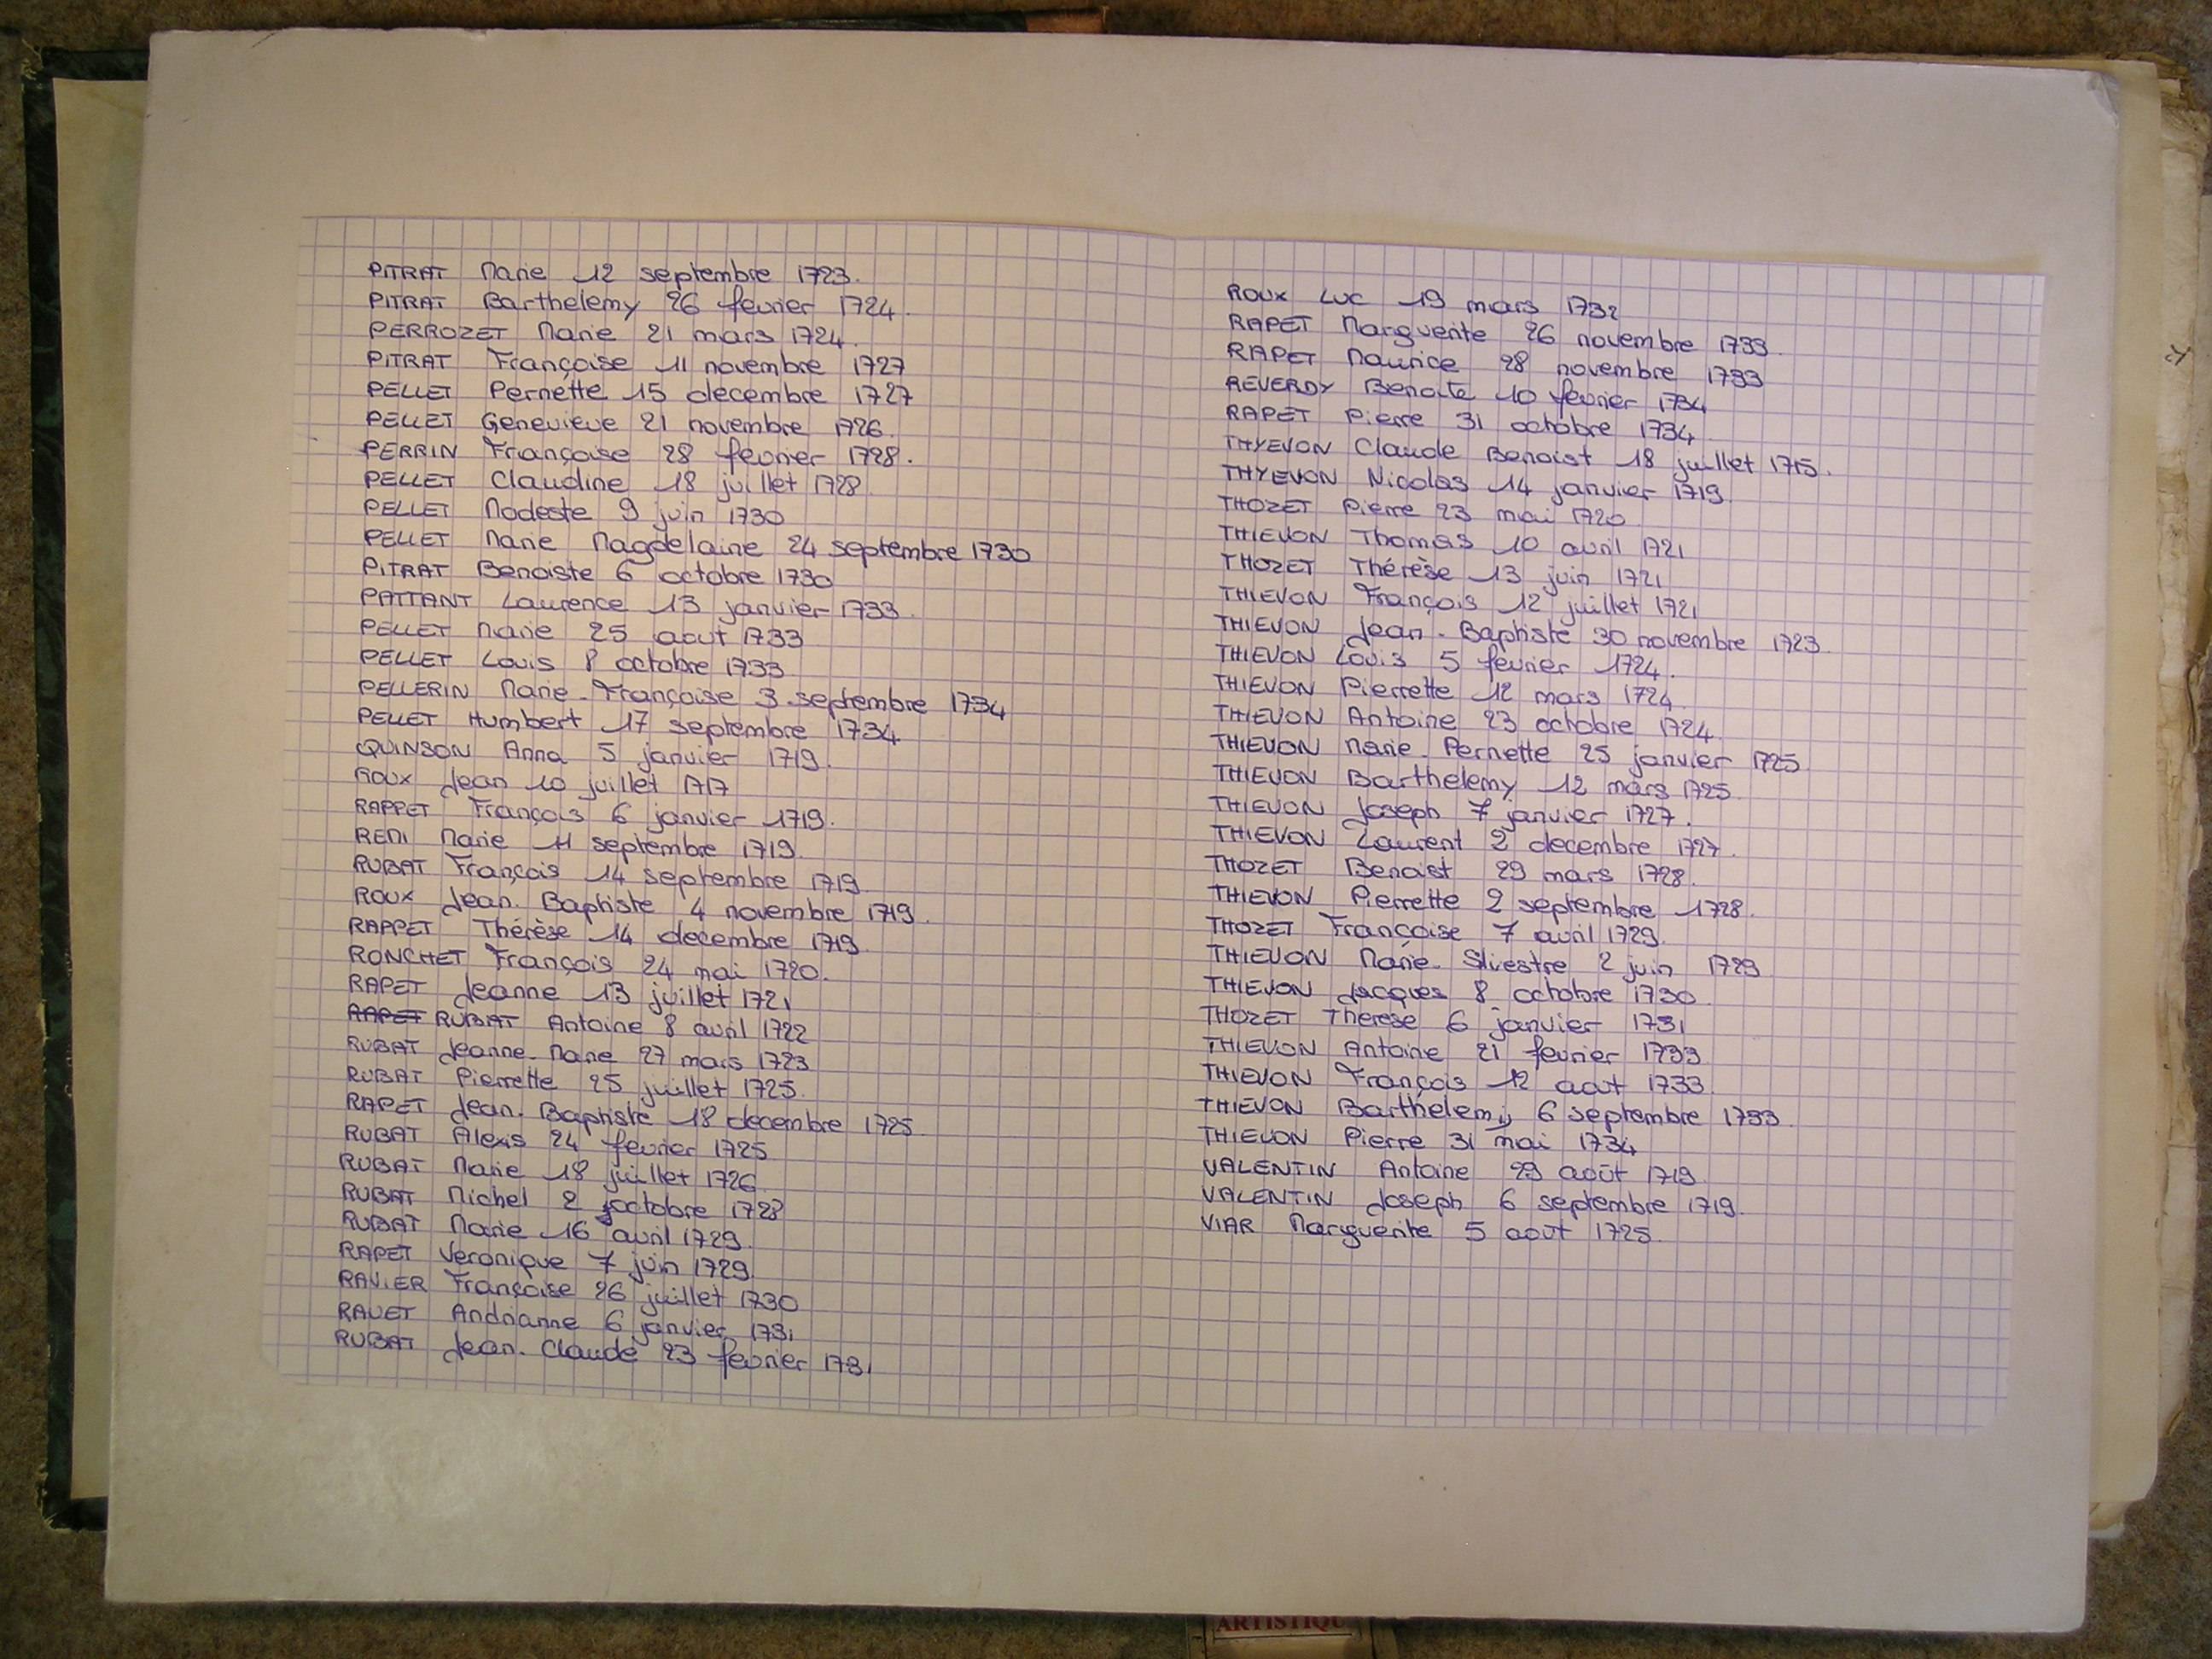 PITRAT Marie 12 septembre 1723.
PITRAT Barthelemy 26 fevrier 1724.
PERROZET Marie 21 mars 1724.
PITRAT Françoise 11 novembre 1727
PELLET Pernette 15 decembre 1727
PELLET Genevieve 21 novembre 1726.
PERRIN Françoise 28 fevrier 1728.
PELLET Claudine 18 juillet 1728
PELLET Modeste 9 juin 1730
PELLET Marie Magdelaine 24 septembre 1730
PITRAT Benoiste 6 octobre 1730
PATTANT Laurence 13 janvier 1733.
PELLET Marie 25 aout 1733
PELLET Louis 8 octobre 1733
PELLERIN Marie-Françoise 3 septembre 1734
PELLET Humbert 17 septembre 1734
QUINSON Anna 5 janvier 1719.
ROUX Jean 10 juillet 1717
RAPPET François 6 janvier 1719.
REMI Marie 11 septembre 1719.
RUBAT François 14 septembre 1719
ROUX Jean-Baptiste 4 novembre 1719.
RAPPET Thérèse 14 decembre 1719.
RONCHET François 24 mai 1720.
RAPET Jeanne 13 juillet 1721
RAPET RUBAT Antoine 8 avril 1722
RUBAT Jeanne-Marie 27 mars 1723
RUBAT Pierrette 25 juillet 1725.
RAPET Jean-Baptiste 18 decembre 1725
RUBAT Alexis 24 fevrier 1725
RUBAT Marie 18 juillet 1726
RUBAT Michel 2 octobre 1728
RUBAT Marie 16 avril 1729.
RAPET Veronique 7 juin 1729.
RAVIER Françoise 26 juillet 1730
RAVET Andrianne 6 janvier 1731
RUBAT Jean-Claude 23 fevrier 1731
ROUX Luc 19 mars 1732
RAPET Marguerite 26 novembre 1733.
RAPET Maurice 28 novembre 1733
REVERDY Benoite 10 fevrier 1734
RAPET Pierre 31 octobre 1734
THYEVON Claude Benoist 18 juillet 1715.
THYEVON Nicolas 14 janvier 1719
THOZET Pierre 23 mai 1720
THIEVON Thomas 10 avril 1721
THOZET Thérèse 13 juin 1721
THIEVON François 12 juillet 1721
THIEVON Jean-Baptiste 30 novembre 1723.
THIEVON Louis 5 fevrier 1724.
THIEVON Pierrette 12 mars 1724
THIEVON Antoine 23 octobre 1724.
THIEVON Marie-Pernette 25 janvier 1725
THIEVON Barthelemy 12 mars 1725
THIEVON Joseph 7 janvier 1727.
THIEVON Laurent 2 decembre 1727.
THOZET Benoist 29 mars 1728.
THIEVON Pierrette 2 septembre 1728.
THOZET Françoise 7 avril 1729.
THIEVON Marie-Silvestre 2 juin 1729
THIEVON Jacques 8 octobre 1730
THOZET Therese 6 janvier 1731
THIEVON Antoine 21 fevrier 1733
THIEVON François 12 aout 1733.
THIEVON Barthelemy 6 septembre 1733.
THIEVON Pierre 31 mai 1734
VALENTIN Antoine 29 août 1719
VALENTIN Joseph 6 septembre 1719.
VIAR Marguerite 5 août 1725.
ARTISTIQU